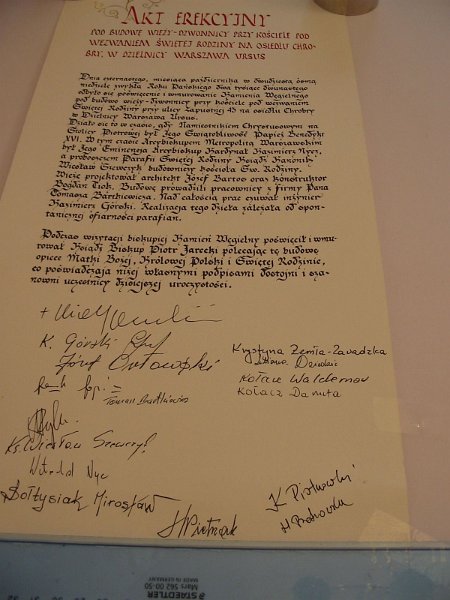 AKT EREKCYJNY
POD BUDOWĘ WIEŻY-DZWONNICY PRZY KOŚCIELE POD
WEZWANIEM ŚWIĘTEJ RODZINY NA OSIEDLU CHRO-
BRY, W DZIELNICY WARSZAWA URSUS
Dnia czternastego, miesiąca października w dwudziestą ósmą
niedzielę zwykłą Roku Pańskiego dwa tysiące dwunastego
odbyło się poświęcenie i wmurowanie Kamienia Węgielnego
pod budowę wieży-dzwonnicy przy kościele pod wezwaniem
Świętej Rodziny przy ulicy Zapustnej 45 na osiedlu Chrobry
w Dzielnicy Warszawa Ursus.
Działo się to w czasie, gdy Namiestnikiem Chrystusowym na
Stolicy Piotrowej był Jego Świątobliwość Papież Benedykt
XVI. W tym czasie Arcybiskupem Metropolitą Warszawskim
był Jego Eminencja Arcybiskup Kardynał Kazimierz Nycz,
a proboszczem Parafii Świętej Rodziny Ksiądz Kanonik
Wiesław Szewczyk budowniczy kościoła Św. Rodziny.
Wieżę projektował architekt Józef Bartos oraz konstruktor
Bogdan Ciok. Budowę prowadzili pracownicy z firmy Pana
Tomasza Bartkiewicza. Nad całością prac czuwał inżynier
Kazimierz Górski. Realizacja tego dzieła zależała od spon-
tanicznej ofiarności parafian.
Podczas wizytacji biskupiej Kamień Węgielny poświęcił i wmu-
rował Ksiądz Biskup Piotr Jarecki polecając tę budowę
opiece Matki Bożej, Królowej Polski i Świętej Rodzinie,
co poświadczają niżej własnymi podpisami dostojni i sza-
nowni uczestnicy dzisiejszej uroczystości.
K. Górski
Józef Orłowski
Krystyna Zemła-Zawadzka
Tomasz Bartkiewicz
Kołacz Waldemar
Kołacz Danuta
Ks. Wiesław Szewczyk
Witold Nyc
Sołtysiak Mirosław
K Piotrowski
H Pietrzak
STAEDTLER
Mars 562 00-50
MADE IN GERMANY